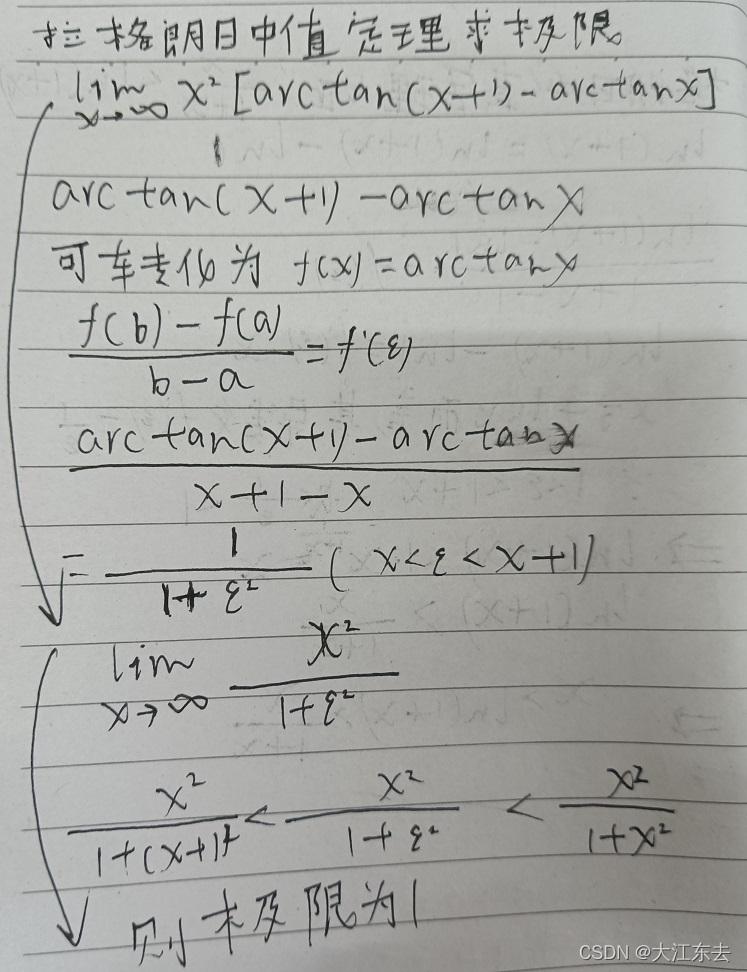 拉格朗日中值定理求极限
lim x→∞ x² [arctan(x+1) - arctanx]
arctan(x+1) - arctanx
可转化为 f(x) = arctanx
f(b) - f(a) / b - a = f'(ε)
arctan(x+1) - arctanx / x+1-x
= 1 / 1+ε² ( x<ε<x+1)
lim x→∞ x² / 1+ε²
x² / 1+(x+1)² < x² / 1+ε² < x² / 1+x²
则极限为1
CSDN @大江东去